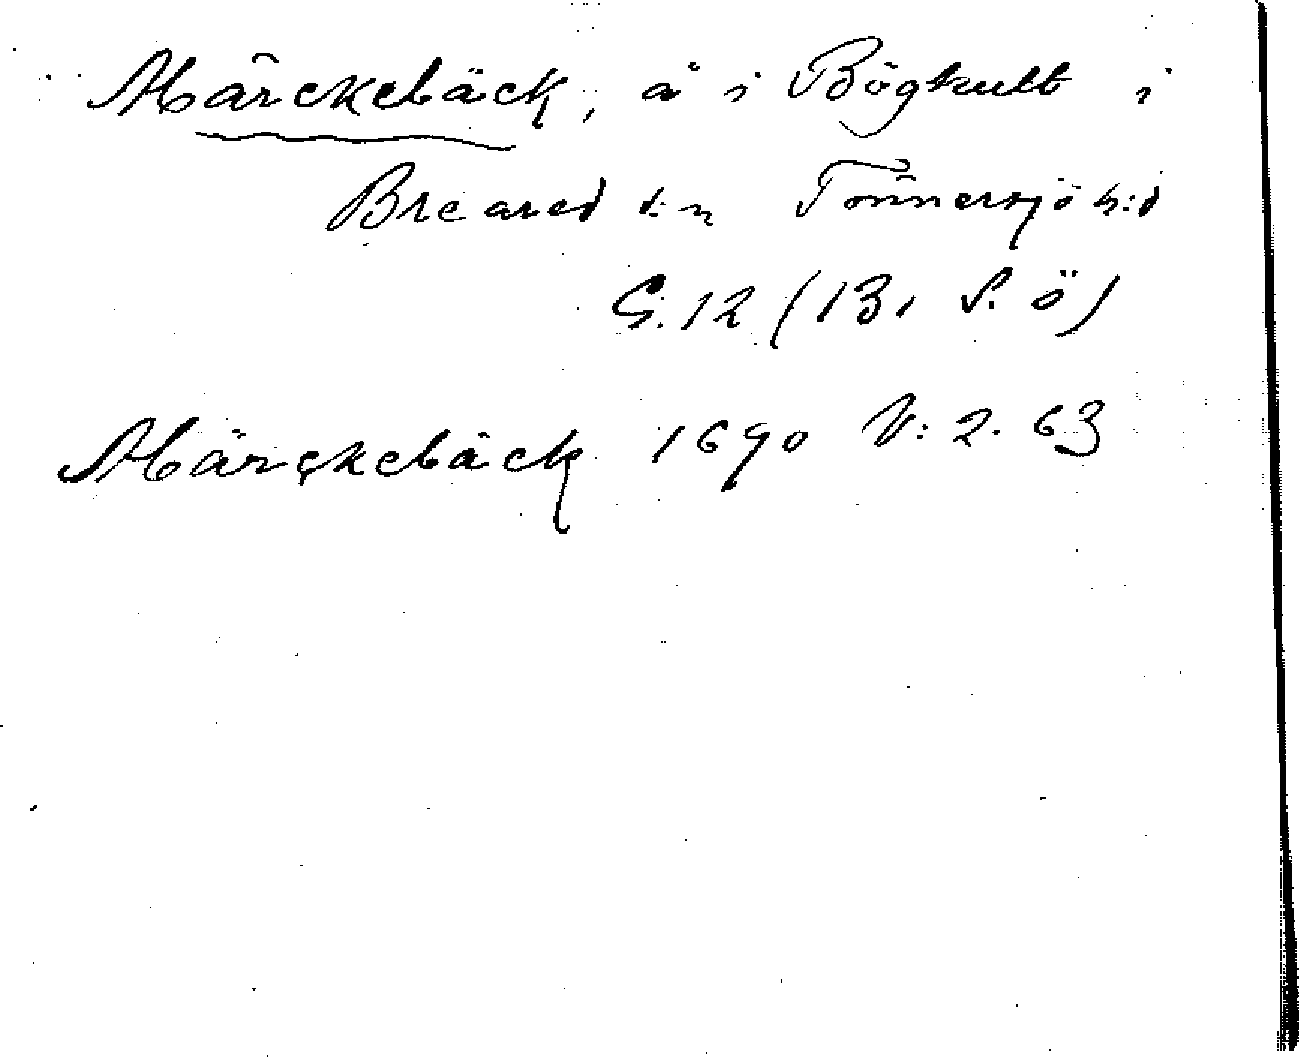 Märckebäck, å i Bögkult i
Breared s:n Tönnersjö h:d
G. 12 (13, S. ö)
Märckebäck 1690 V: 2. 63